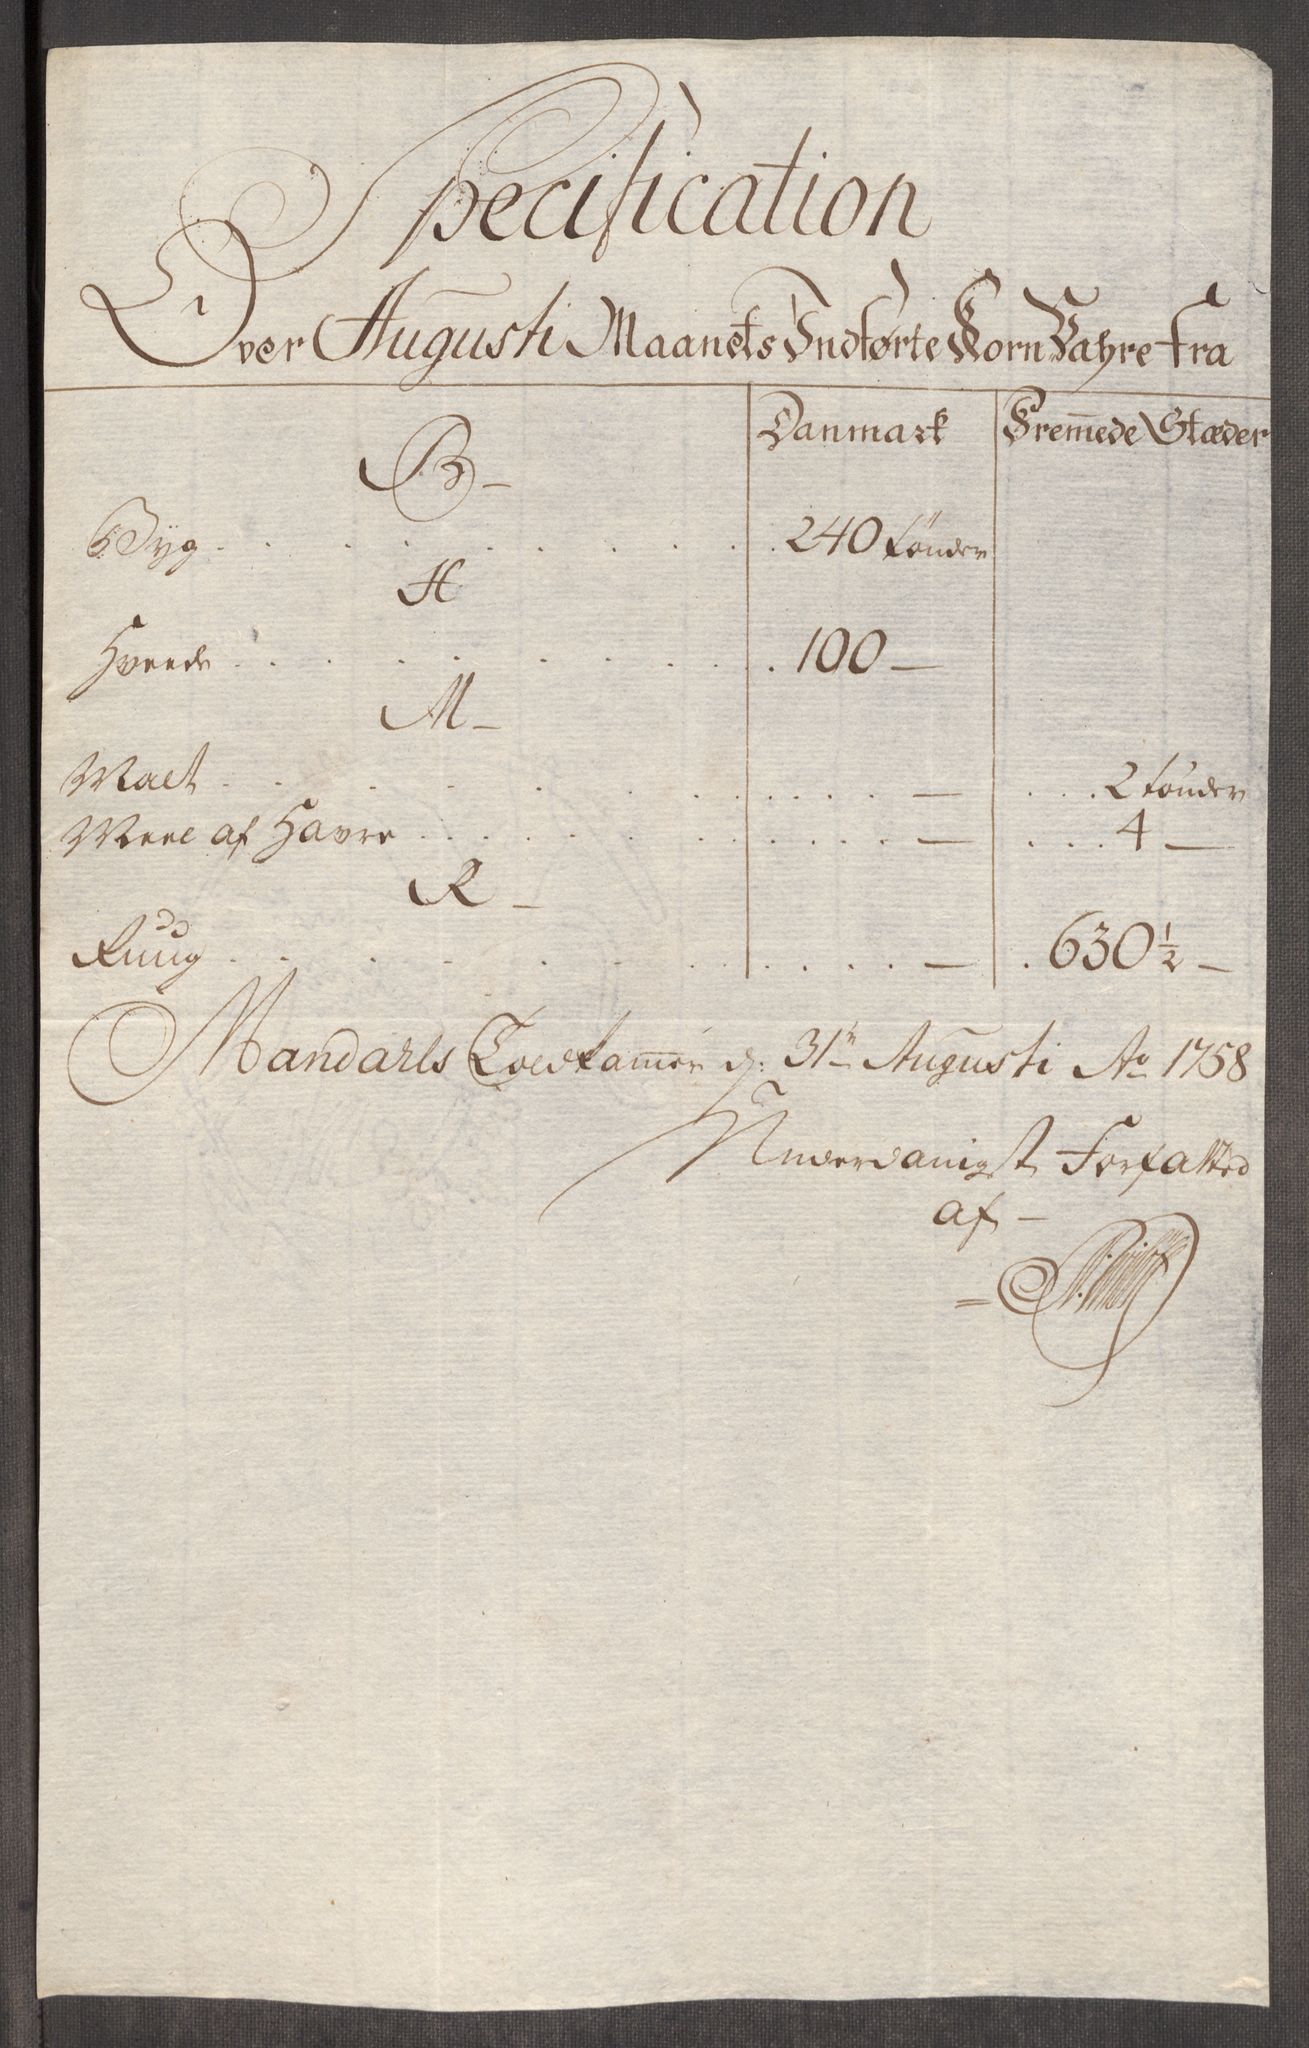 Specification
Over Augusti Maanets Indførte Korn Vahre fra
Danmark Fremmede Stæder
B -
Byg . . . . . . . . . 240 tønder
H
Hveede . . . . . . . . . 100 —
M -
Malt . . . . . . . . . — . . . 2 tønder
Meel af Havre . . . . . . . . — . . . 4 —
R -
Ruug . . . . . . . . . — . 630 1/2 —
Mandahls Toldkamer d: 31te Augusti Ao 1758
Underdanigst Forfatted
af -